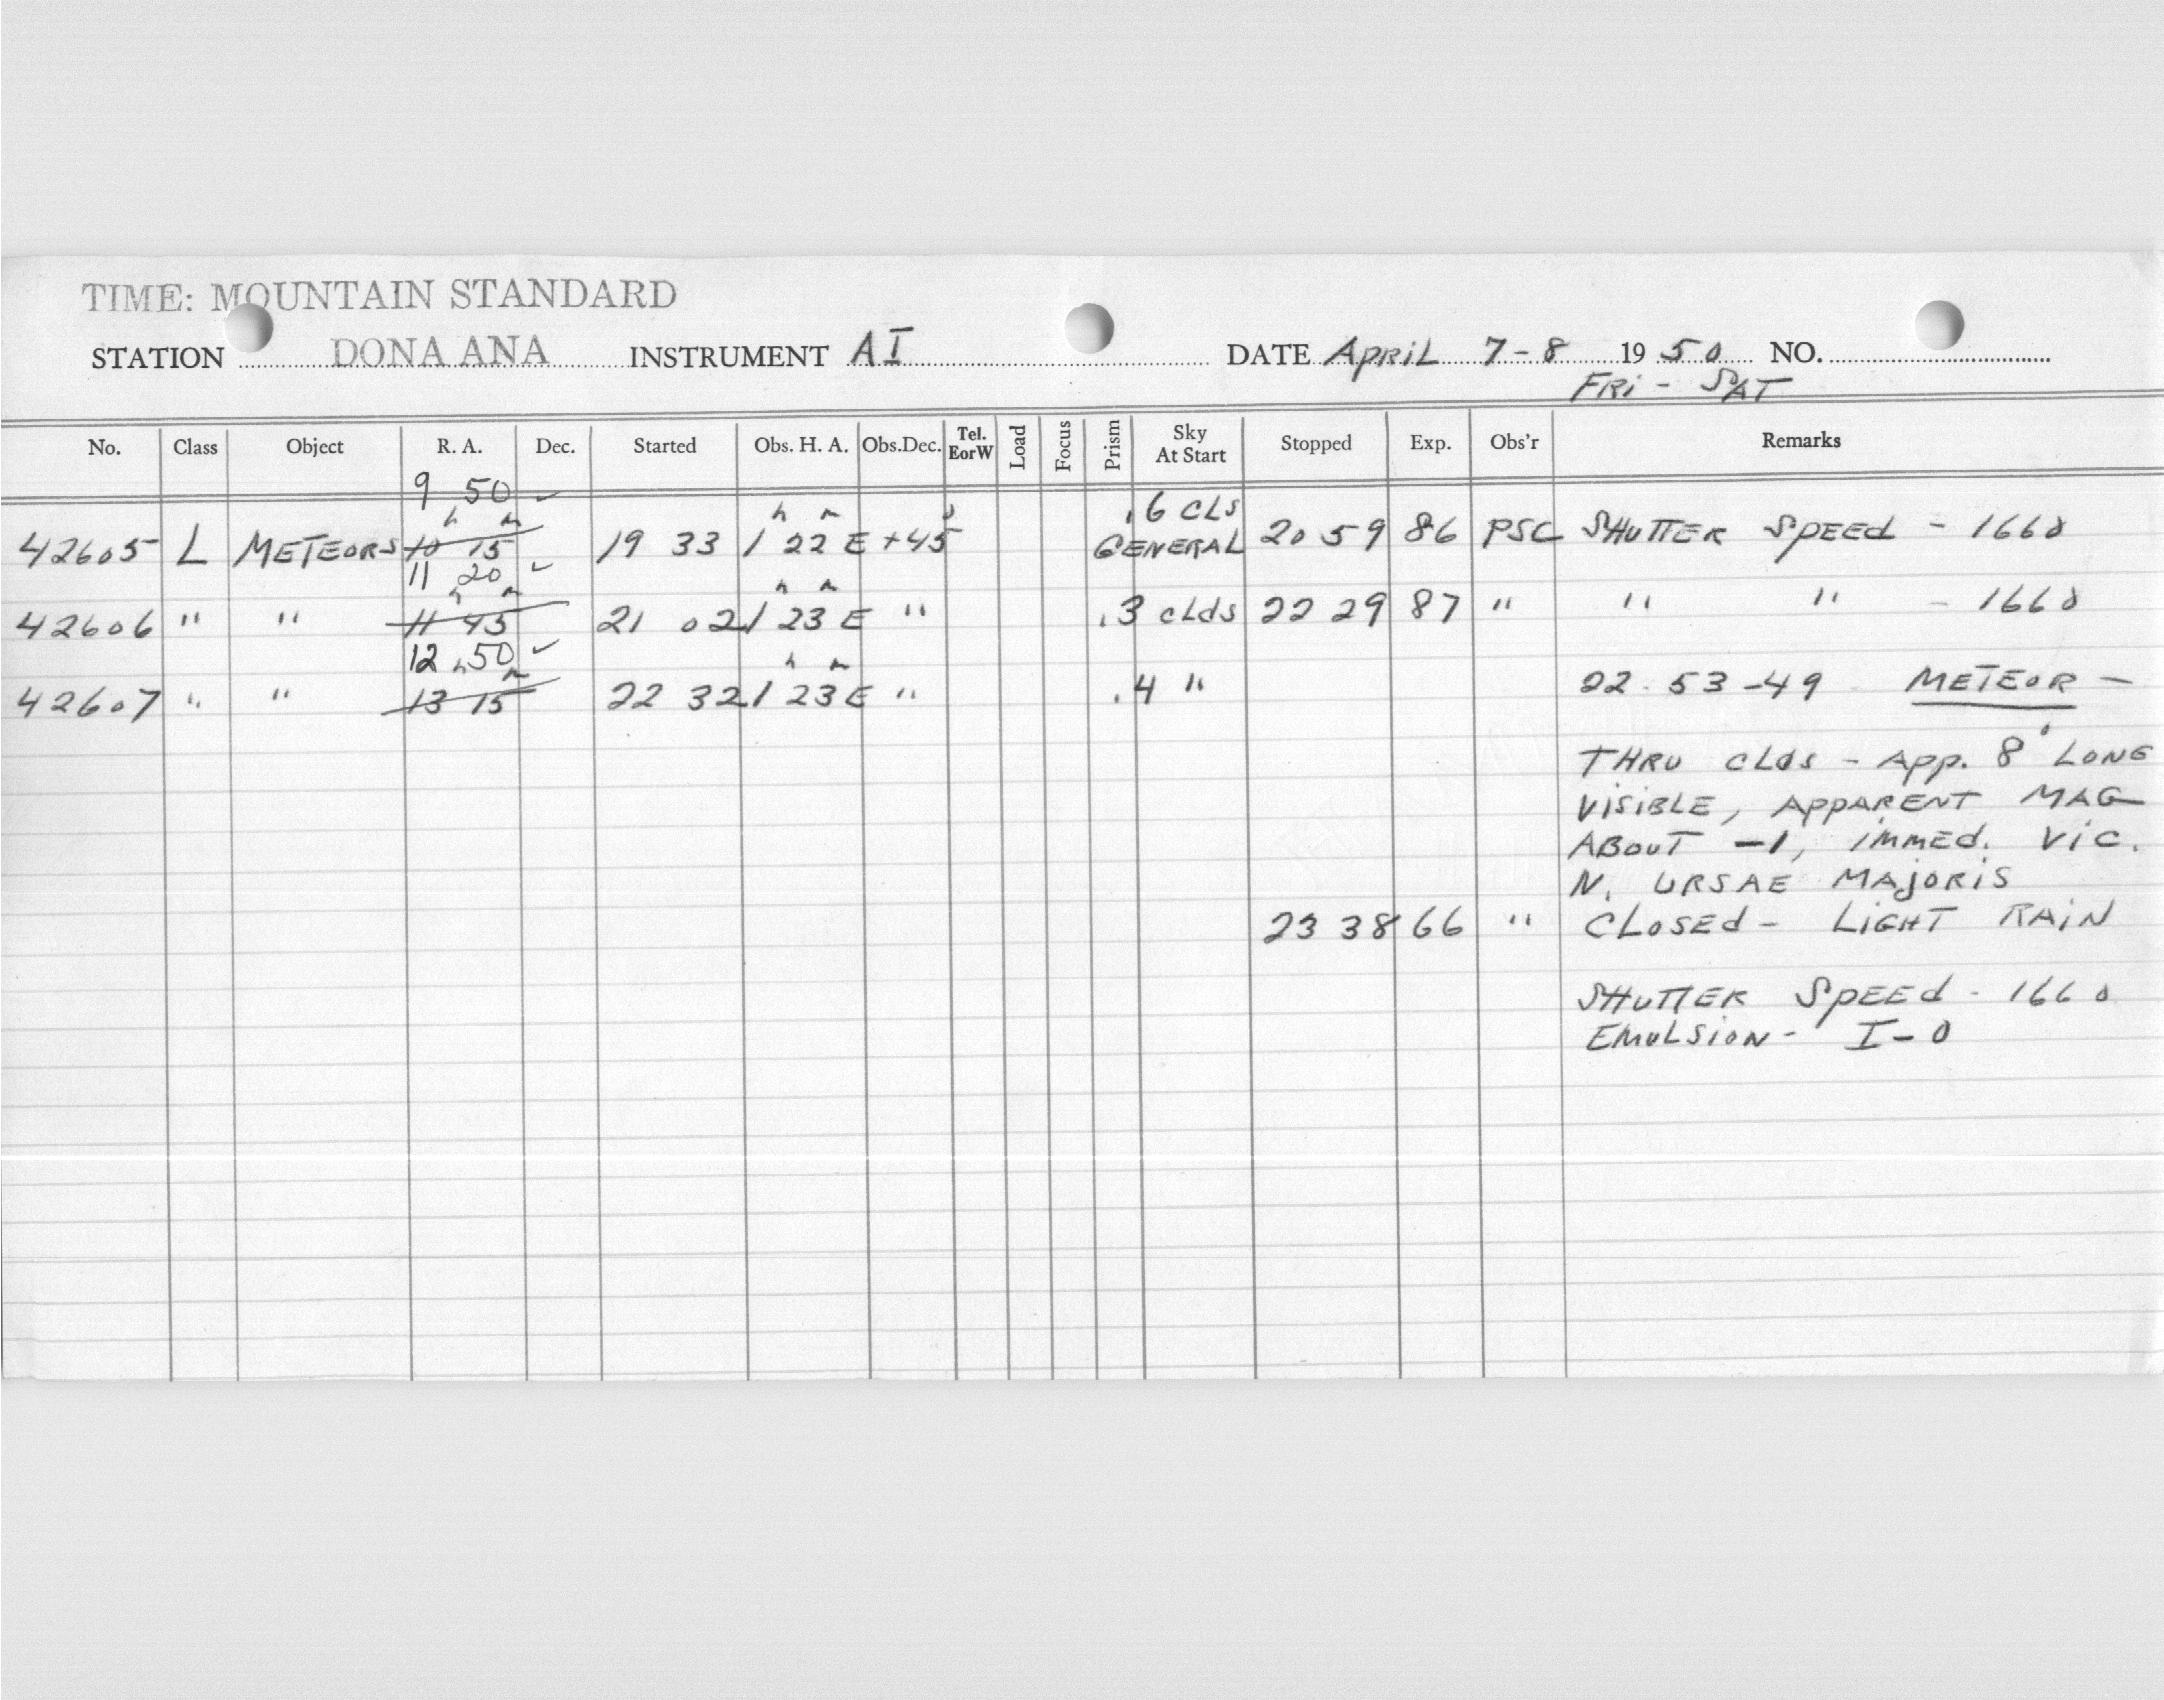 TIME: MOUNTAIN STANDARD
STATION DONA ANA INSTRUMENT AI DATE APRIL 7-8 1950 NO.
FRI - SAT
No. Class Object R. A. Dec. Started Obs. H. A. Obs.Dec. Tel. EorW Load Focus Prism Sky At Start Stopped Exp. Obs'r Remarks
9 50 ✓
42605 L METEORS 10h 15m 19 33 1h 22m E +45° .6 CLS GENERAL 20 59 86 PSC SHUTTER SPEED - 1660
11 20 ✓
42606 " " 11h 45m 21 02 1h 23m E " .3 clds 22 29 87 " " " - 1660
12 50 ✓
42607 " " 13h 15m 22 32 1h 23m E " .4 " 22-53-49 METEOR -
THRU clds - App. 8° LONG
VISIBLE, APPARENT MAG
ABOUT -1, immed. Vic.
N. URSAE MAJORIS
23 38 66 " CLOSED - LIGHT RAIN
SHUTTER SPEED - 1660
EMULSION - I-O